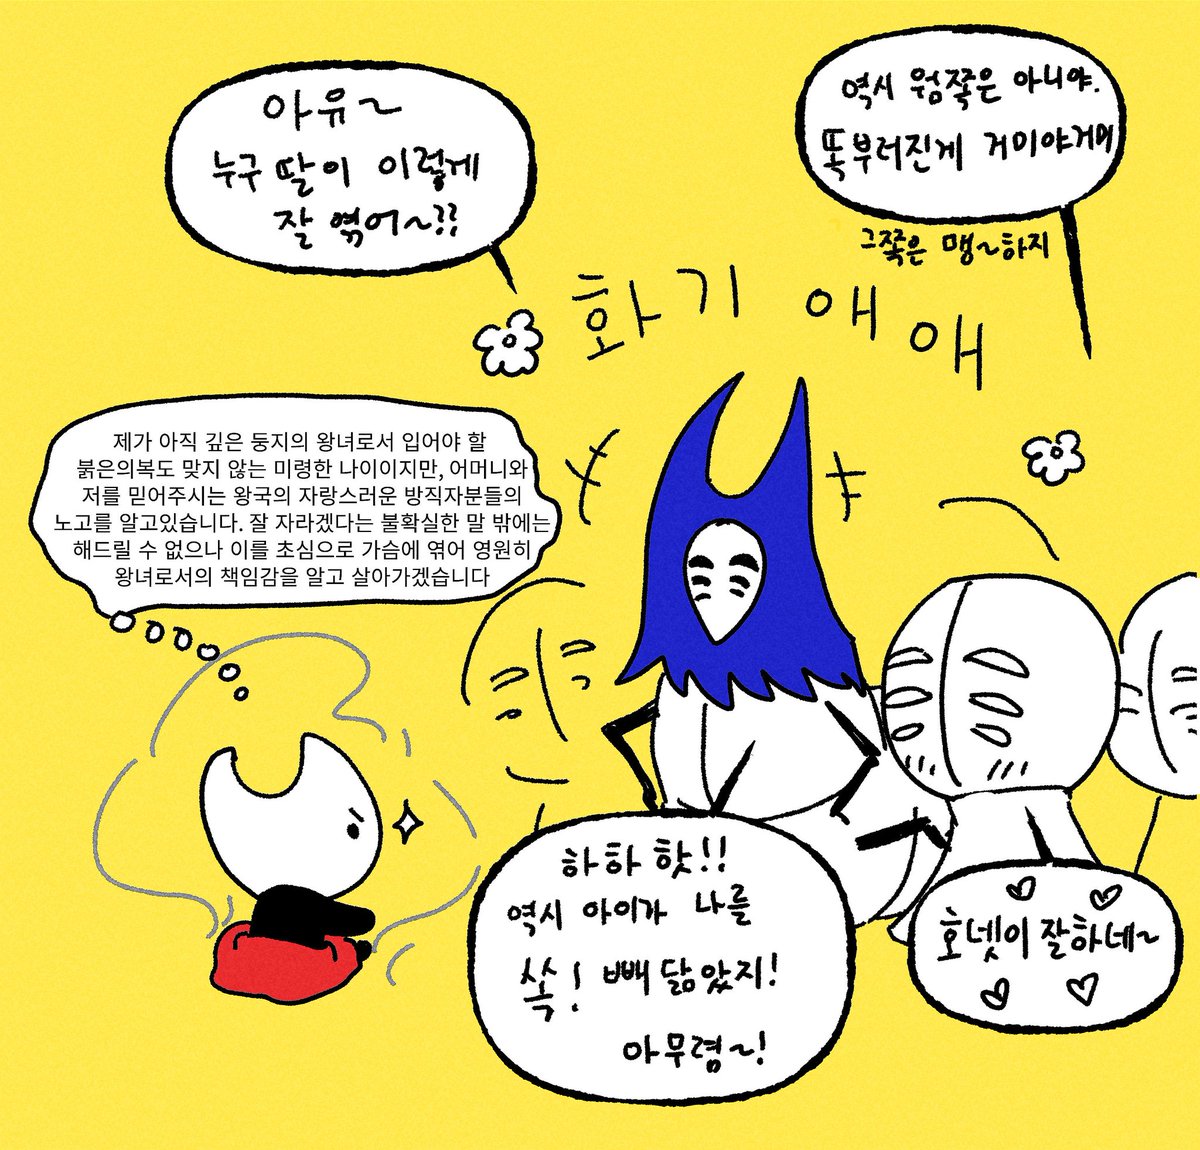 아유~
누구 딸이 이렇게
잘 엮어~??
역시 웜쪽은 아니야.
똑부러진게 거미야거미
그쪽은 맹~하지
화기애애
제가 아직 깊은 둥지의 왕녀로서 입어야 할
붉은의복도 맞지 않는 미령한 나이이지만, 어머니와
저를 믿어주시는 왕국의 자랑스러운 방직자분들의
노고를 알고있습니다. 잘 자라겠다는 불확실한 말 밖에는
해드릴 수 없으나 이를 초심으로 가슴에 엮어 영원히
왕녀로서의 책임감을 알고 살아가겠습니다
하하 핫!!
역시 아이가 나를
쏙! 빼 닮았지!
아무렴~!
호넷이 잘하네~